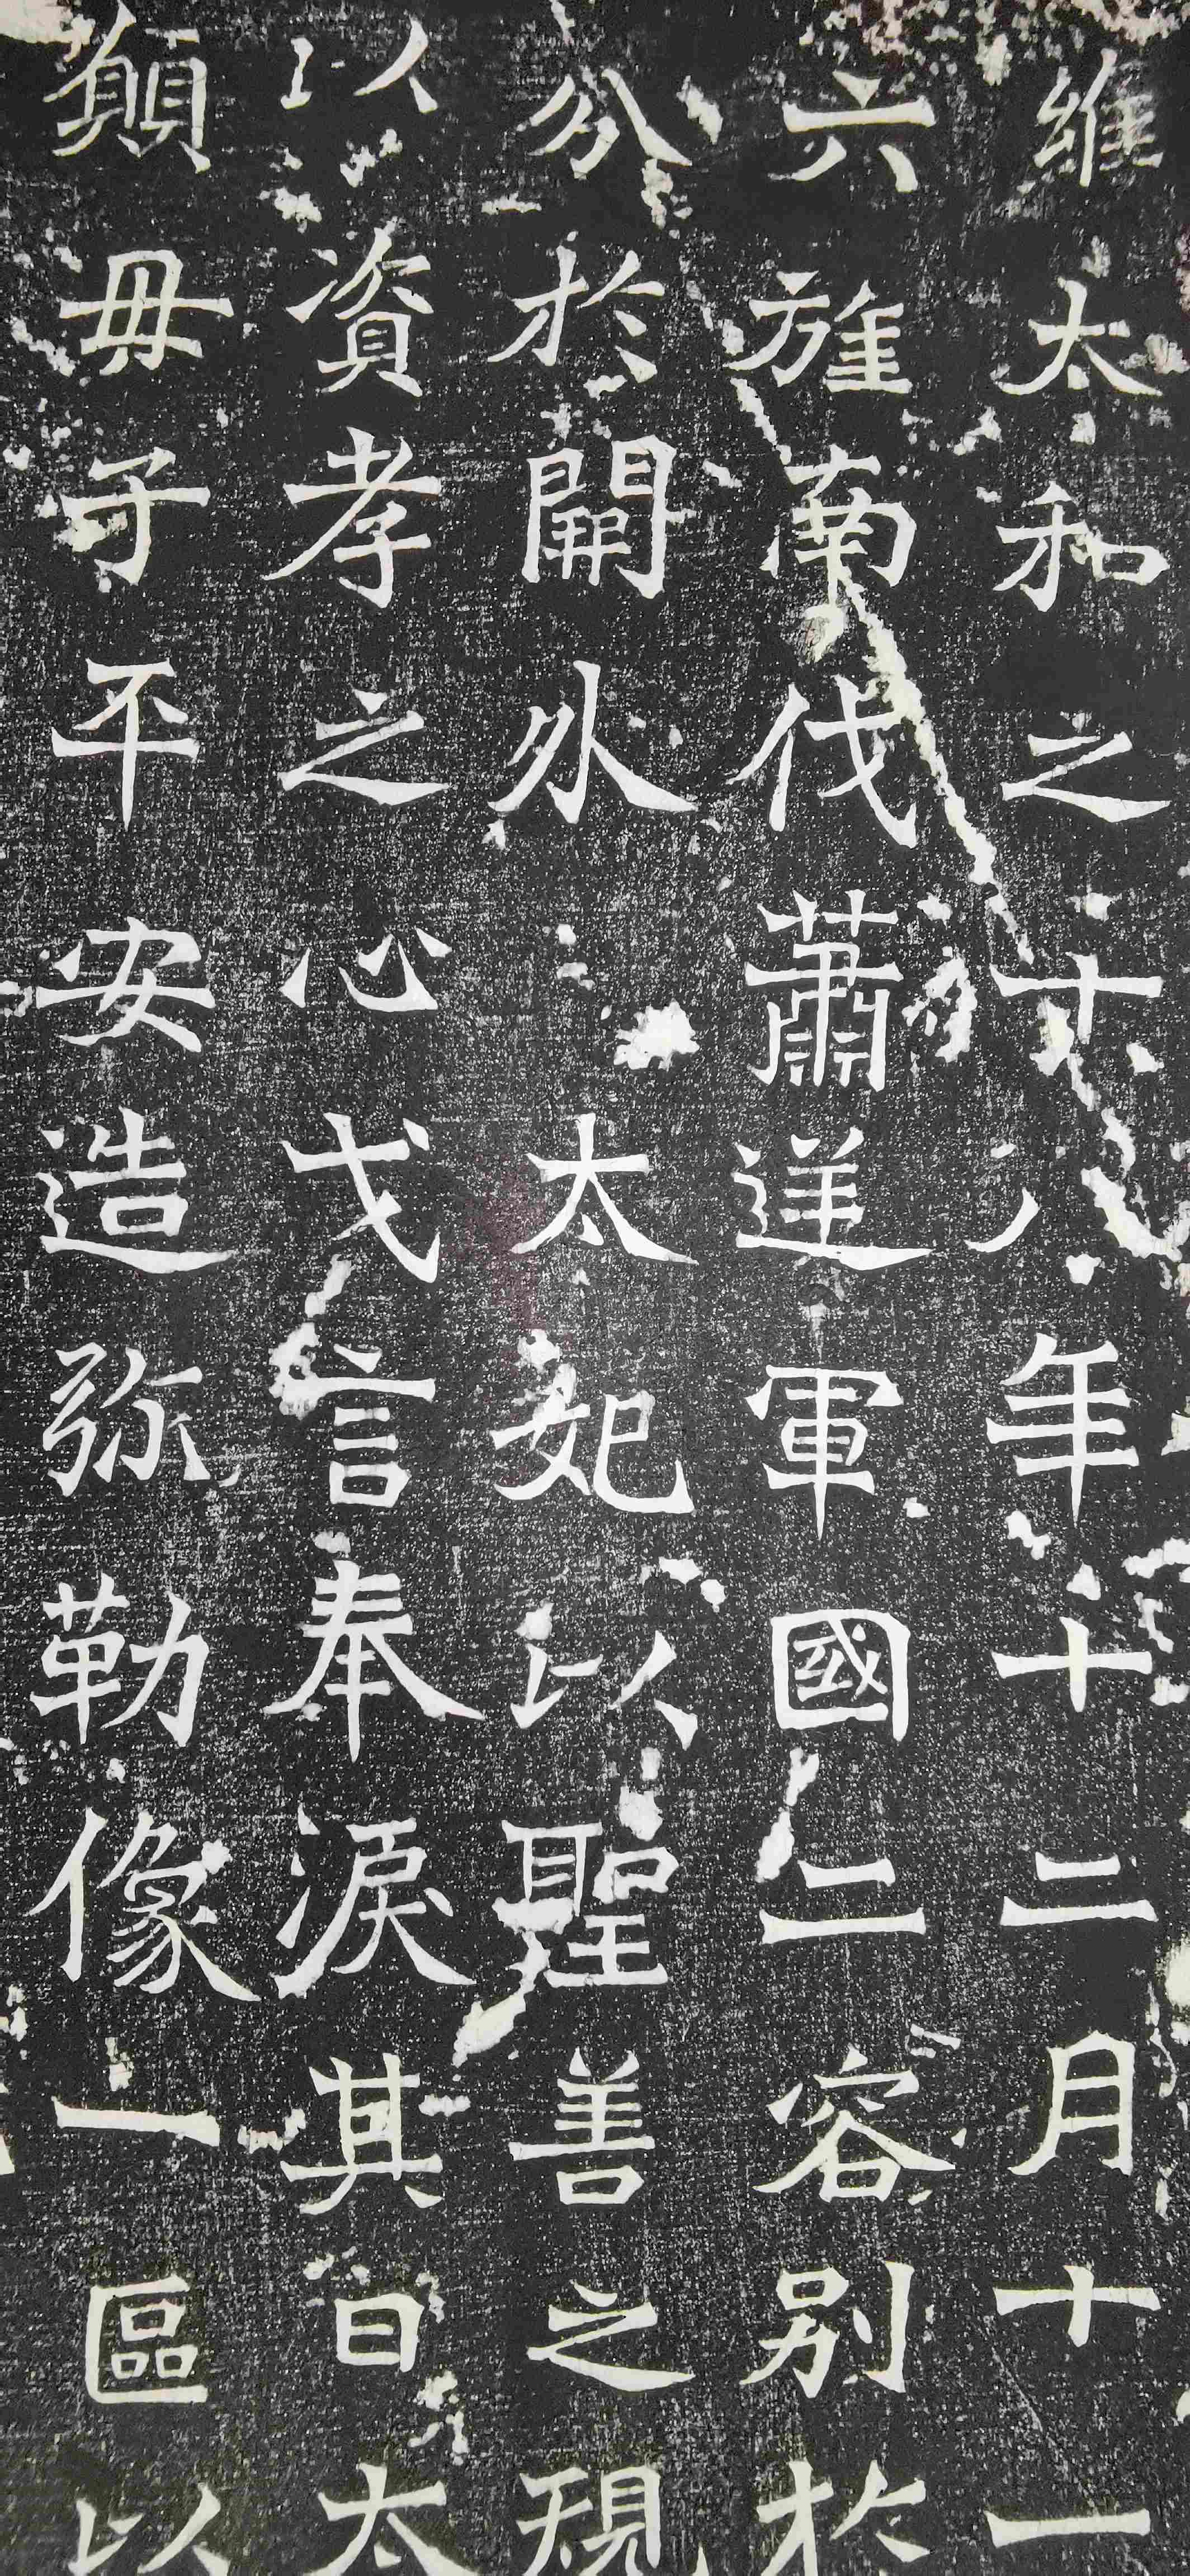 維太和之十八年十二月十一
六旌南伐蕭逆軍國二容別於
分於闕外太妃以聖善之規
以資孝之心戈言奉淚其日太
願毋子平安造弥勒像一區以